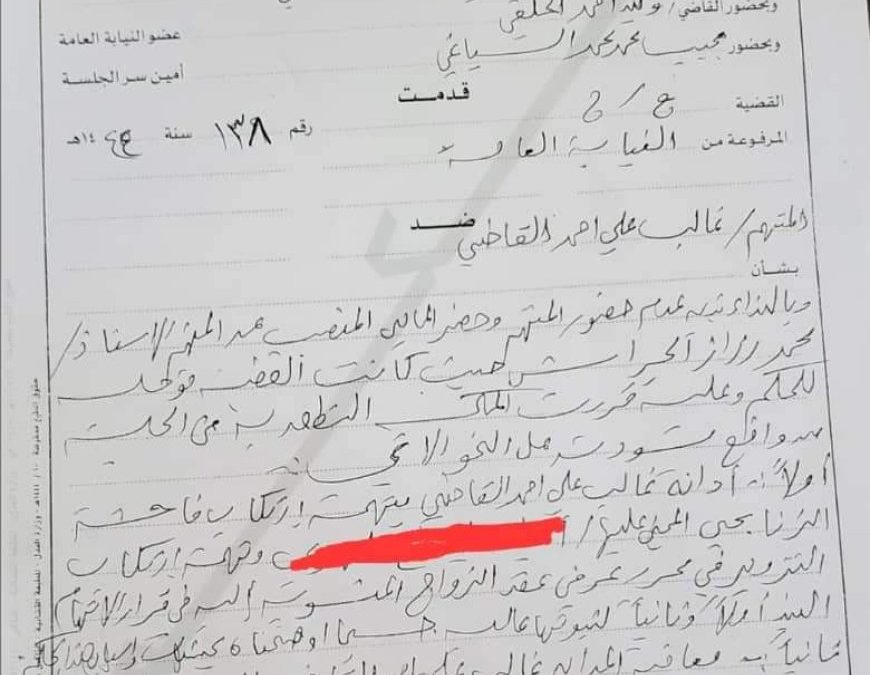 وبحضور القاضي/ وليد احمد الحلقي
عضو النيابة العامة
وبحضور مجيب محمد محمد السياغي
أمين سر الجلسة
القضية ج/ج قدمت
رقم ١٣٨ سنة ١٤ هـ
المرفوعة من النيابة العامة
ضد
المتهم/ غالب علي احمد القاضي
بشأن
وبالنداء تبين عدم حضور المتهم وحضر المحامي المنصب عن المتهم الاستاذ/
محمد الحراشي حيث كانت القضية مؤجلة
للحكم وعليه قررت المحكمة النطق به في الجلسة
من واقع مسودته على النحو الاتي
أولاً: أدانة غالب علي احمد القاضي بتهمة ارتكاب فاحشة
الزنا بحق المجني عليها/ وتهمة ارتكاب
التزوير في محرر عرفي عقد الزواج المنسوبة إليه في قرار الاتهام
البند أولاً وثانياً لثبوتها عليه حسبما اوضحناه بحيثيات واسباب هذا الحكم
ثانياً: معاقبة المدان غالب علي احمد